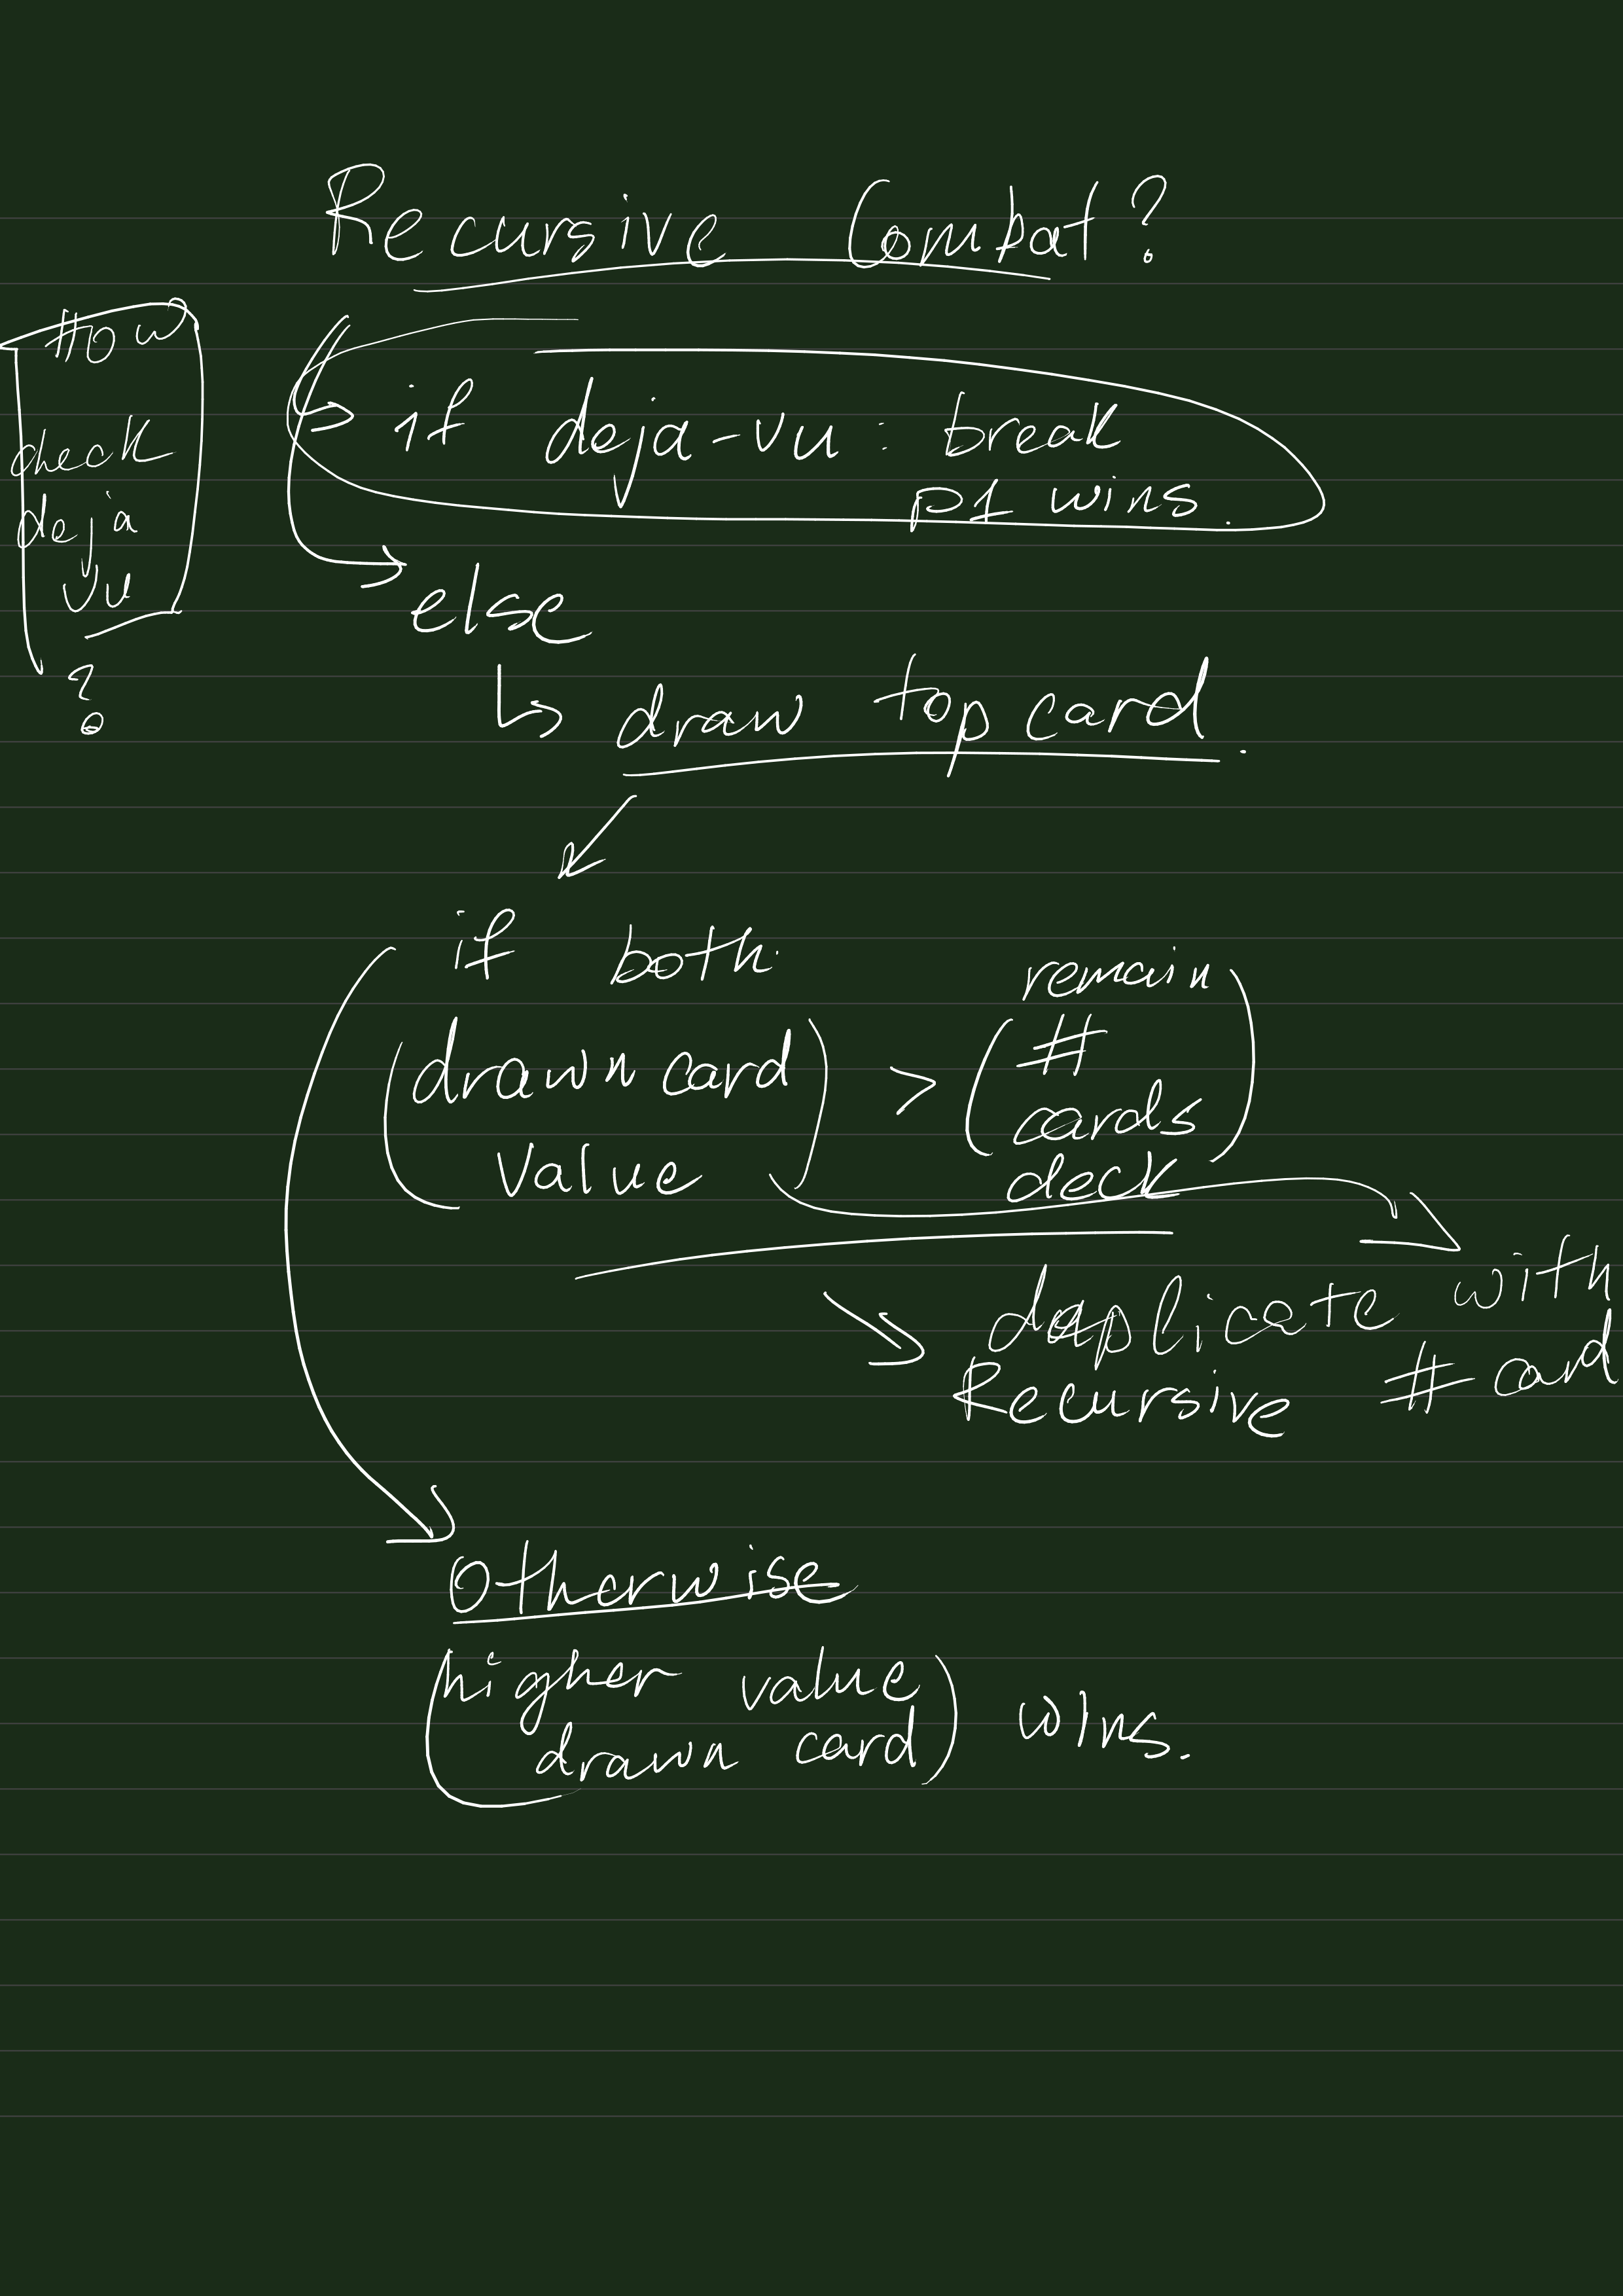 Recursive Combat?
How
check
deja
vu
?
if deja-vu : break
p1 wins.
else
draw top card.
if both
(drawn card
value)
>
(remain
#
cards
deck)
duplicate with
Recursive # card
Otherwise
(higher value
drawn card) wins.